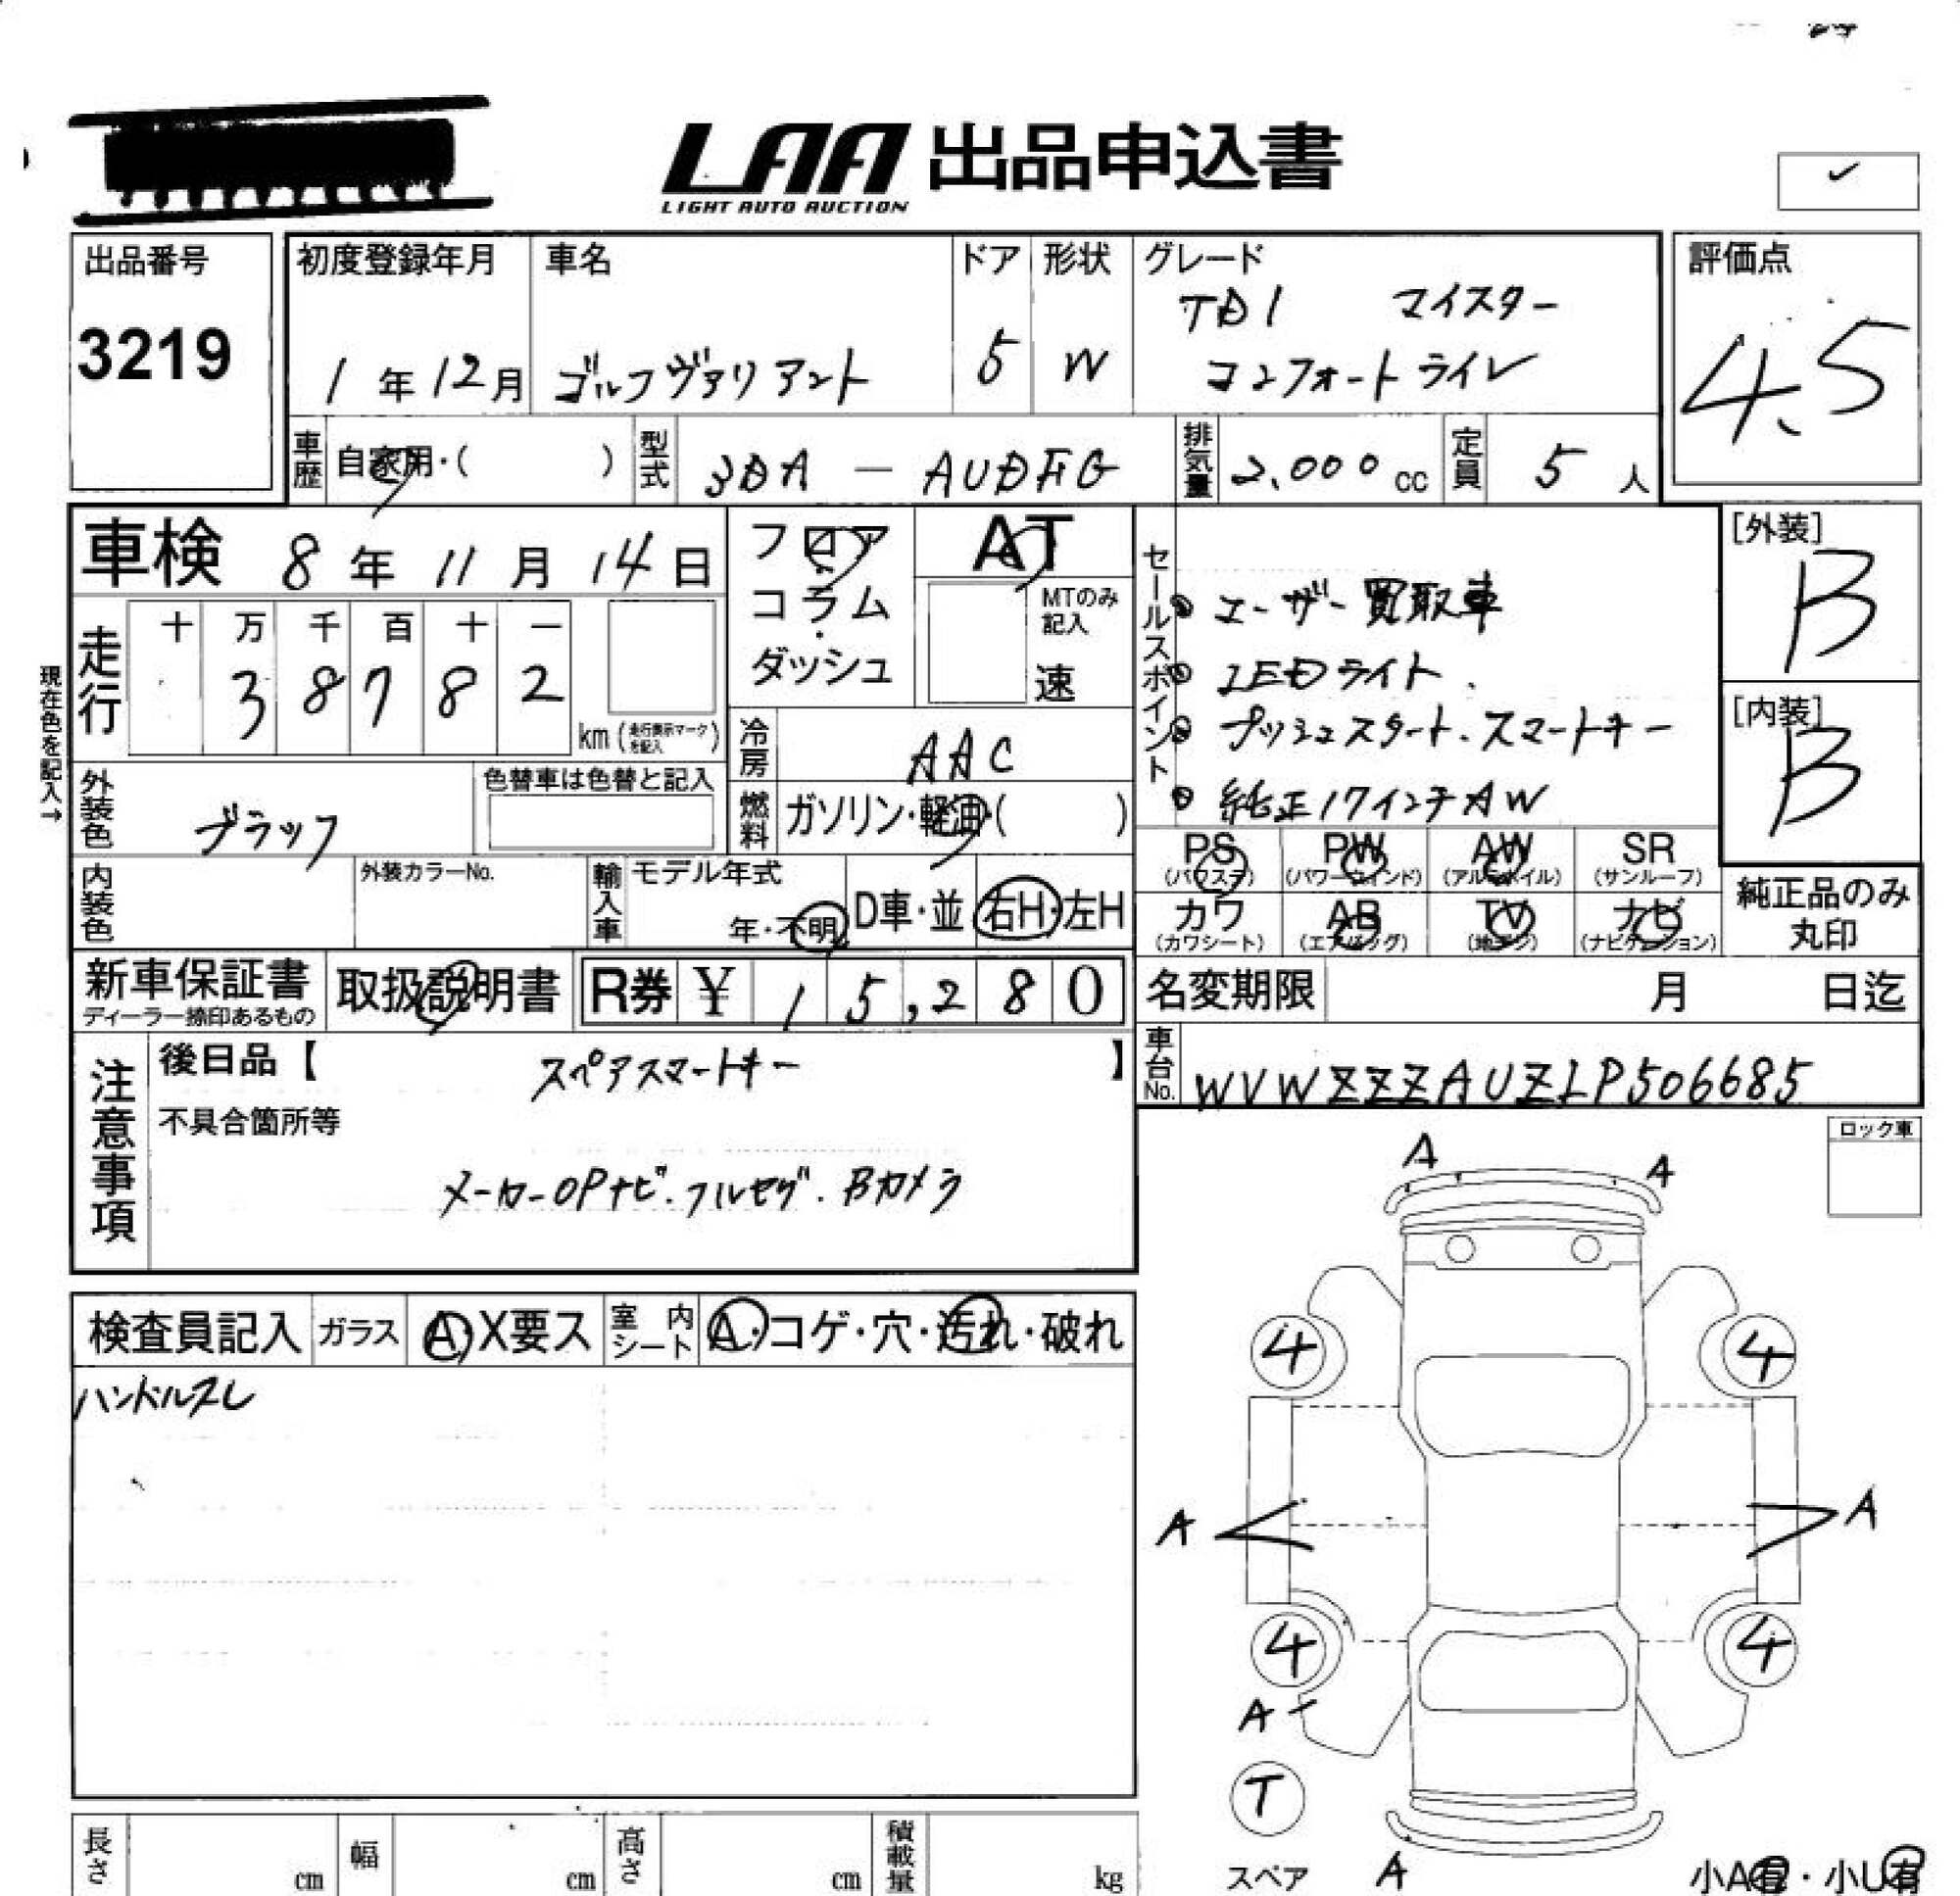 LAA 出品申込書
LIGHT AUTO AUCTION
出品番号
3219
初度登録年月
1年12月
車名
ゴルフヴァリアント
ドア
5
形状
W
グレード
TDI マイスター
コンフォートライン
評価点
4.5
車歴
自家用・( )
型式
3DA - AUDFG
排気量
2,000 cc
定員
5 人
車検 8年11月14日
フロア
コラム
ダッシュ
AT
MTのみ
記入
速
走行
十 万 千 百 十 一
3 8 7 8 2
km(走行表示マークを記入)
現在色を記入→
冷房
AAC
外装色
ブラック
色替車は色替と記入
燃料
ガソリン・軽油・( )
内装色
外装カラーNo.
輸入車
モデル年式
年・不明
D車・並
右H・左H
セールスポイント
ユーザー買取車
LEDライト
プッシュスタート.スマートキー
純正17インチAW
[外装]
B
[内装]
B
PS
(パワステ)
PW
(パワーウィンド)
AW
(アルミホイル)
SR
(サンルーフ)
カワ
(カワシート)
AB
(エアバッグ)
TV
(地デジ)
ナビ
(ナビゲーション)
純正品のみ
丸印
新車保証書
ディーラー捺印あるもの
取扱説明書
R券 ¥ 15,280
名変期限 月 日迄
車台No.
WVWZZZAUZLP506685
注意事項
後日品【 スペアスマートキー 】
不具合箇所等
メーカーOPナビ.フルセグ.Bカメラ
ロック車
検査員記入
ガラス
A・X要ス
室内シート
A・コゲ・穴・汚れ・破れ
ハンドルスレ
A A
4 4
A A
4 4
A
T
スペア
A
小A有・小U有
長さ cm
幅 cm
高さ cm
積載量 kg